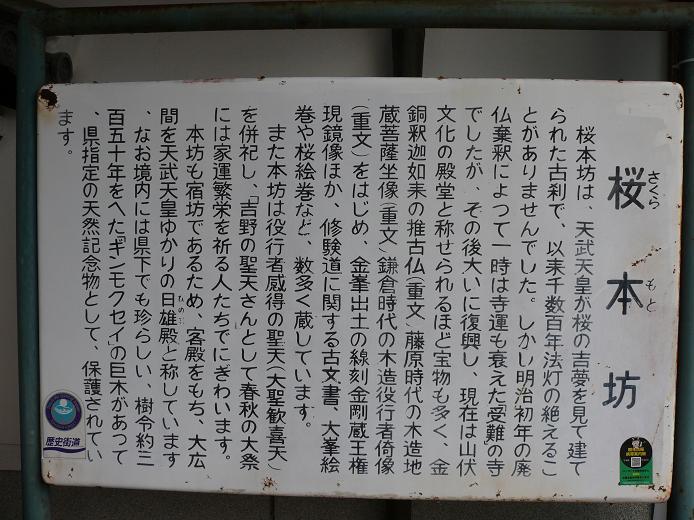 桜本坊
さくら
もと
桜本坊は、天武天皇が桜の吉夢を見て建て
られた古刹で、以来千数百年法灯の絶えるこ
とがありませんでした。しかし明治初年の廃
仏棄釈によつて一時は寺運も衰えた「受難」の寺
でしたが、その後大いに復興し、現在は山伏
文化の殿堂と称せられるほど宝物も多く、金
銅釈迦如来の推古仏(重文)藤原時代の木造地
蔵菩薩坐像(重文)鎌倉時代の木造役行者倚像
(重文)をはじめ、金峯出土の線刻金剛蔵王権
現鏡像ほか、修験道に関する古文書 大峯絵
巻や桜絵巻など、数多く蔵しています。
また本坊は役行者感得の聖天(大聖歓喜天)
を併祀し、「吉野の聖天さん」として春秋の大祭
には家運繁栄を祈る人たちでにぎわいます。
本坊も宿坊であるため、客殿をもち、大広
間を天武天皇ゆかりの日雄殿と称しています
ひのお
、なお境内には県下でも珍らしい、樹令約三
百五十年をへた「ギンモクセイ」の巨木があって
、県指定の天然記念物として、保護されてい
ます。
歴史街道